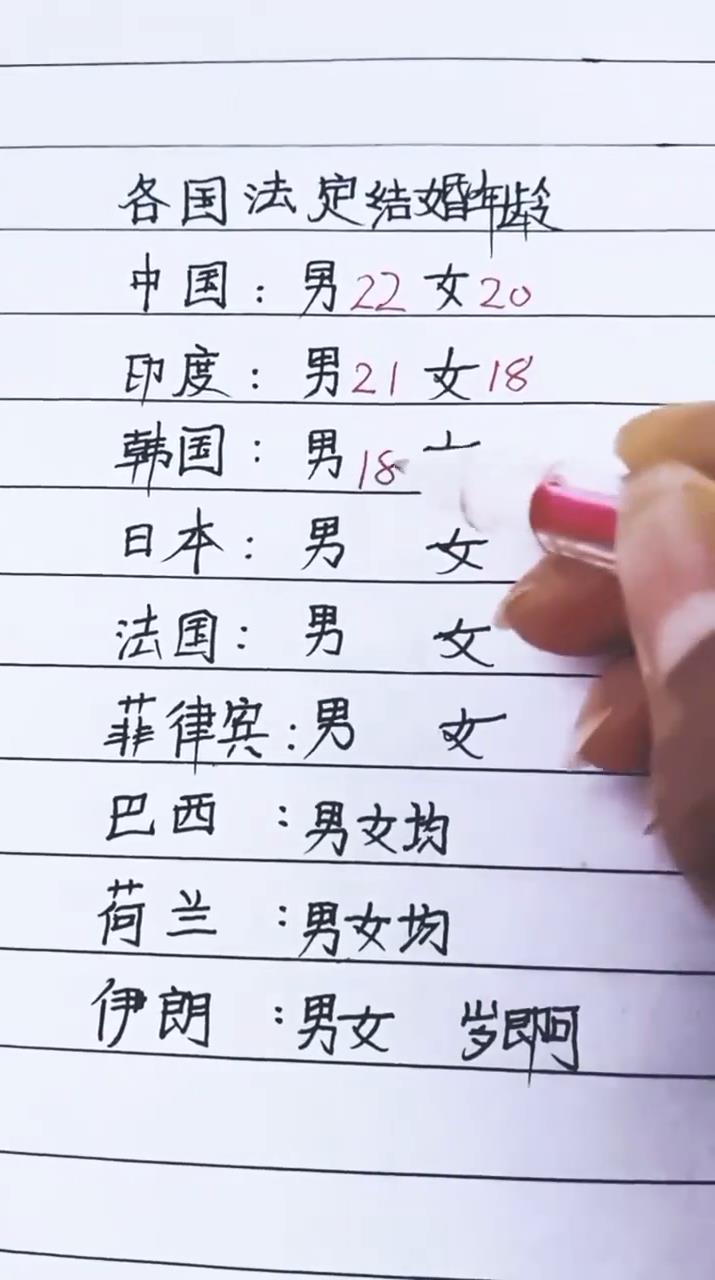 各国法定结婚年龄
中国：男22 女20
印度：男21 女18
韩国：男18
日本：男 女
法国：男 女
菲律宾：男 女
巴西：男女均
荷兰：男女均
伊朗：男女 岁即可